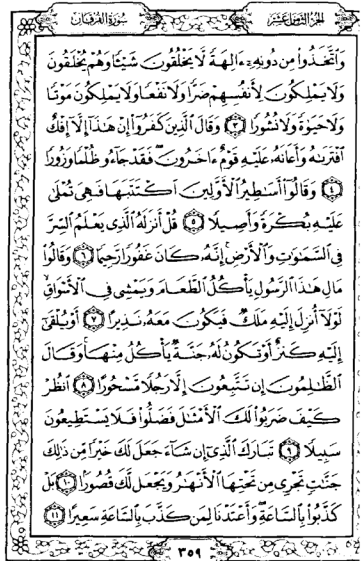 سورة الفرقان
الجزء الثامن عشر
وَاتَّخَذُوا مِن دُونِهِ ءَالِهَةً لَّا يَخْلُقُونَ شَيْـًٔا وَهُمْ يُخْلَقُونَ
وَلَا يَمْلِكُونَ لِأَنفُسِهِمْ ضَرًّا وَلَا نَفْعًا وَلَا يَمْلِكُونَ مَوْتًا
وَلَا حَيَوٰةً وَلَا نُشُورًا ٣ وَقَالَ الَّذِينَ كَفَرُوٓا إِنْ هَٰذَآ إِلَّآ إِفْكٌ
افْتَرَىٰهُ وَأَعَانَهُ عَلَيْهِ قَوْمٌ ءَاخَرُونَ فَقَدْ جَآءُو ظُلْمًا وَزُورًا
٤ وَقَالُوٓا أَسَٰطِيرُ الْأَوَّلِينَ اكْتَتَبَهَا فَهِىَ تُمْلَىٰ
عَلَيْهِ بُكْرَةً وَأَصِيلًا ٥ قُلْ أَنزَلَهُ الَّذِى يَعْلَمُ السِّرَّ
فِى السَّمَٰوَٰتِ وَالْأَرْضِ إِنَّهُ كَانَ غَفُورًا رَّحِيمًا ٦ وَقَالُوا
مَالِ هَٰذَا الرَّسُولِ يَأْكُلُ الطَّعَامَ وَيَمْشِى فِى الْأَسْوَاقِ
لَوْلَآ أُنزِلَ إِلَيْهِ مَلَكٌ فَيَكُونَ مَعَهُ نَذِيرًا ٧ أَوْ يُلْقَىٰٓ
إِلَيْهِ كَنزٌ أَوْ تَكُونُ لَهُ جَنَّةٌ يَأْكُلُ مِنْهَا وَقَالَ
الظَّٰلِمُونَ إِن تَتَّبِعُونَ إِلَّا رَجُلًا مَّسْحُورًا ٨ انظُرْ
كَيْفَ ضَرَبُوا لَكَ الْأَمْثَٰلَ فَضَلُّوا فَلَا يَسْتَطِيعُونَ
سَبِيلًا ٩ تَبَارَكَ الَّذِىٓ إِن شَآءَ جَعَلَ لَكَ خَيْرًا مِّن ذَٰلِكَ
جَنَّٰتٍ تَجْرِى مِن تَحْتِهَا الْأَنْهَٰرُ وَيَجْعَل لَّكَ قُصُورًا ١٠ بَلْ
كَذَّبُوا بِالسَّاعَةِ وَأَعْتَدْنَا لِمَن كَذَّبَ بِالسَّاعَةِ سَعِيرًا ١١
٣٥٩